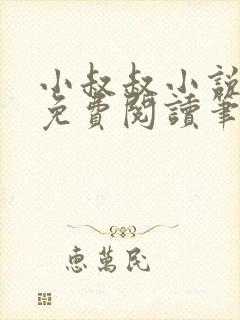 小叔叔小説
免費閱讀筆
惠萬民